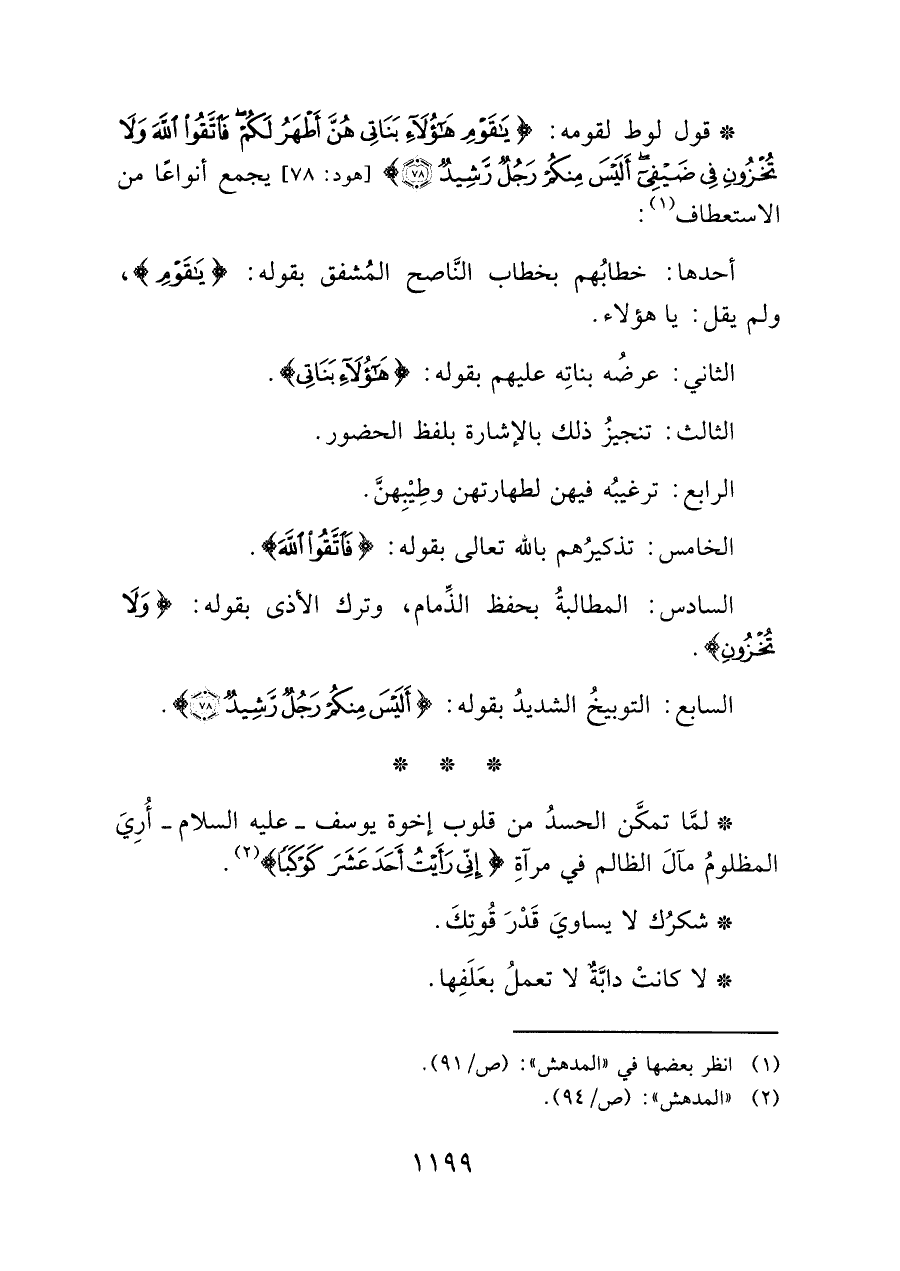 * قول لوط لقومه: ﴿ يَٰقَوۡمِ هَٰٓؤُلَآءِ بَنَاتِي هُنَّ أَطۡهَرُ لَكُمۡۖ فَٱتَّقُواْ ٱللَّهَ وَلَا
تُخۡزُونِ فِي ضَيۡفِيٓۖ أَلَيۡسَ مِنكُمۡ رَجُلٞ رَّشِيدٞ ٧٨﴾ [هود: ٧٨] يجمع أنواعًا من
الاستعطاف(١):
أحدها: خطابُهم بخطاب النَّاصح المُشفق بقوله: ﴿ يَٰقَوۡمِ ﴾،
ولم يقل: يا هؤلاء.
الثاني: عرضُه بناتِه عليهم بقوله: ﴿ هَٰٓؤُلَآءِ بَنَاتِي﴾.
الثالث: تنجيزُ ذلك بالإشارة بلفظ الحضور.
الرابع: ترغيبُه فيهن لطهارتهن وطِيْبِهنَّ.
الخامس: تذكيرُهم بالله تعالى بقوله: ﴿ فَٱتَّقُواْ ٱللَّهَ﴾.
السادس: المطالبةُ بحفظ الذِّمام، وترك الأذى بقوله: ﴿ وَلَا
تُخۡزُونِ﴾.
السابع: التوبيخُ الشديدُ بقوله: ﴿ أَلَيۡسَ مِنكُمۡ رَجُلٞ رَّشِيدٞ ٧٨﴾.
* * *
* لمَّا تمكَّن الحسدُ من قلوب إخوة يوسف ـ عليه السلام ـ أُرِيَ
المظلومُ مآلَ الظالم في مرآةِ ﴿ إِنِّي رَأَيۡتُ أَحَدَ عَشَرَ كَوۡكَبٗا﴾(٢).
* شكرُك لا يساويَ قَدْرَ قُوتِكَ.
* لا كانتْ دابَّةٌ لا تعملُ بعَلَفِها.
(١) انظر بعضها في «المدهش»: (ص/ ٩١).
(٢) «المدهش»: (ص/ ٩٤).
١١٩٩